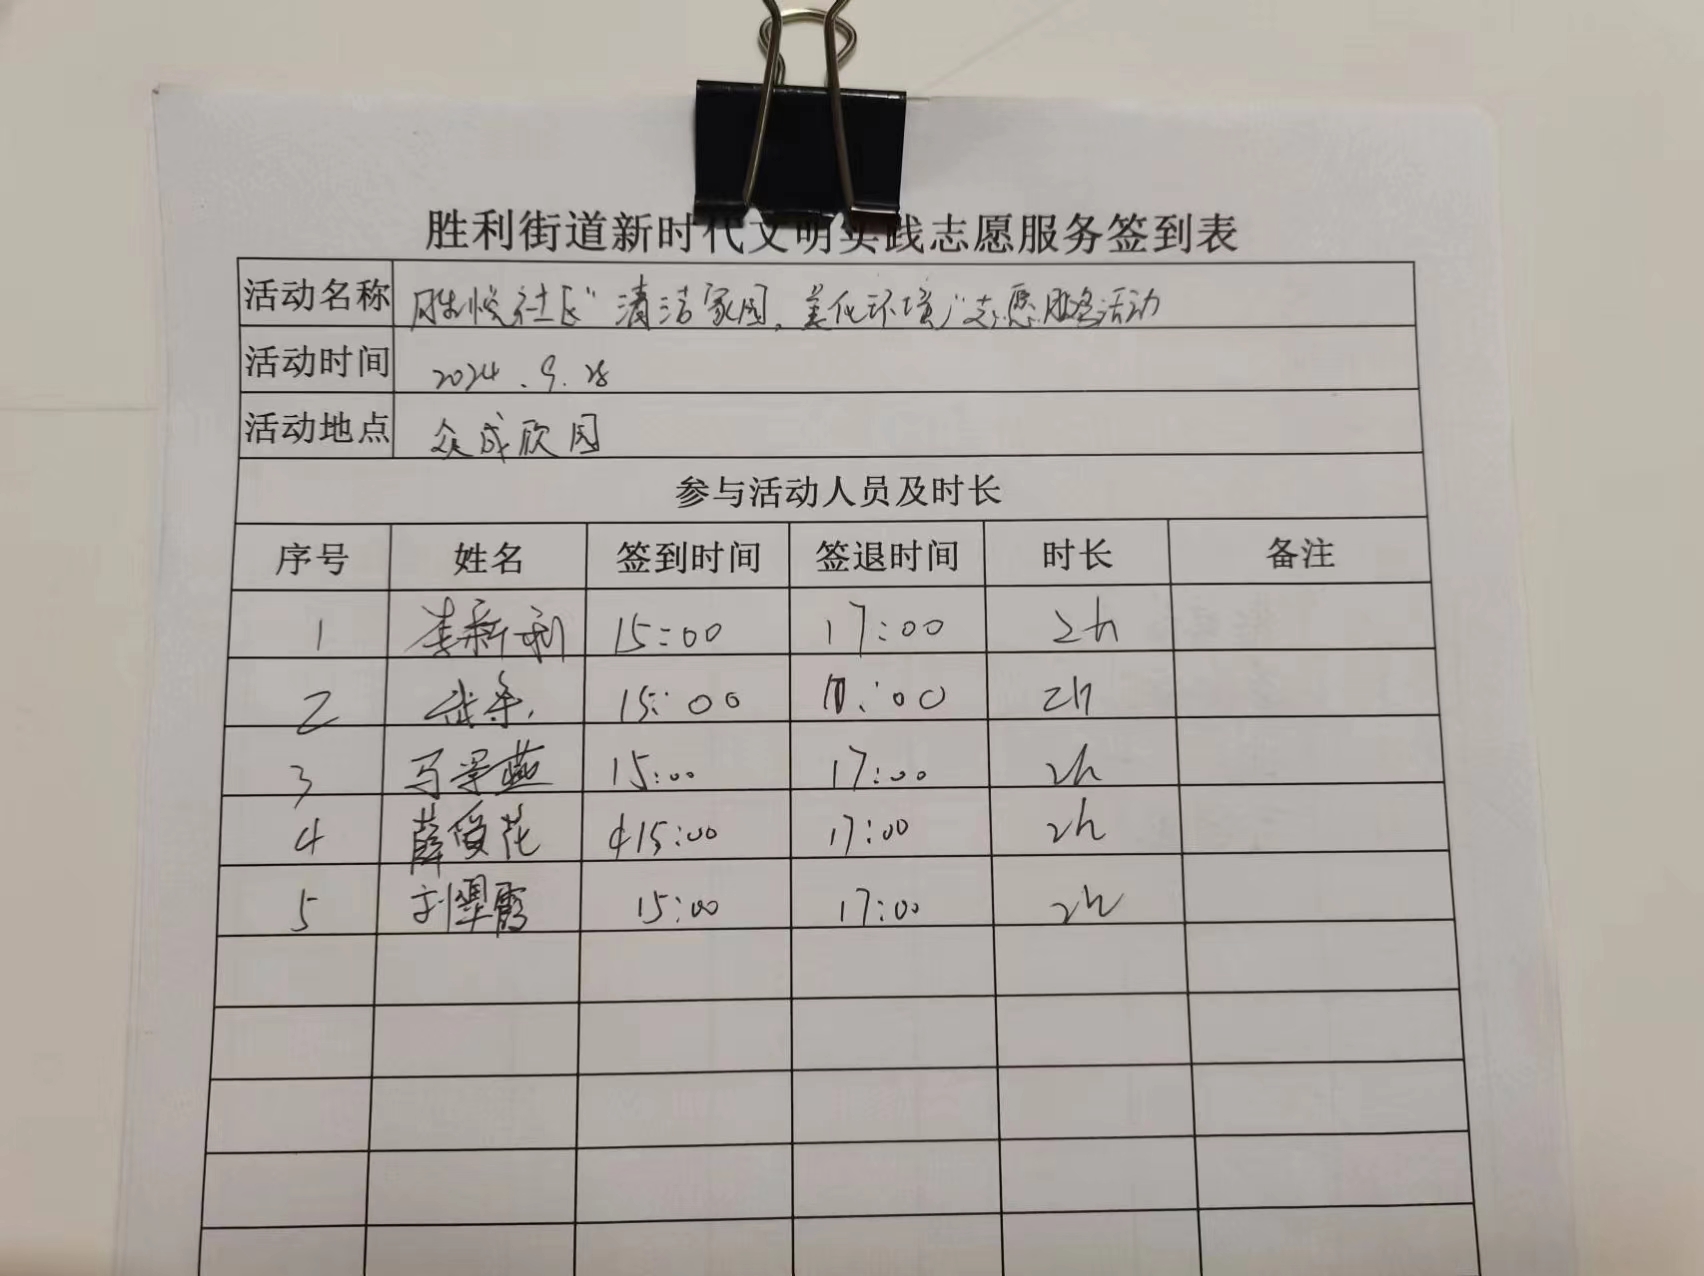 胜利街道新时代文明实践志愿服务签到表
活动名称 胜悦社区“清洁家园,美化环境”志愿服务活动
活动时间 2024.9.28
活动地点 众成欣园
参与活动人员及时长
序号 姓名 签到时间 签退时间 时长 备注
1 李新利 15:00 17:00 2h
2 15:00 17:00 2h
3 马学燕 15:00 17:00 2h
4 薛爱花 15:00 17:00 2h
5 刘翠霞 15:00 17:00 2h